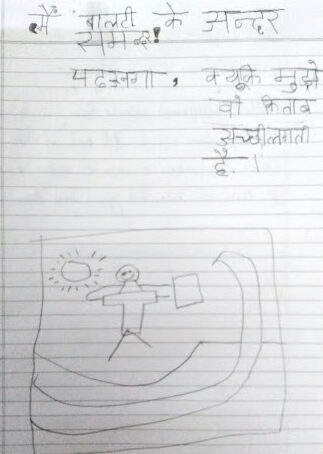 मैं बालटी के अन्दर
समन्दर!
पढउनगा, क्यूकि मुझे
वो किताब
अच्छीलगती
है.।